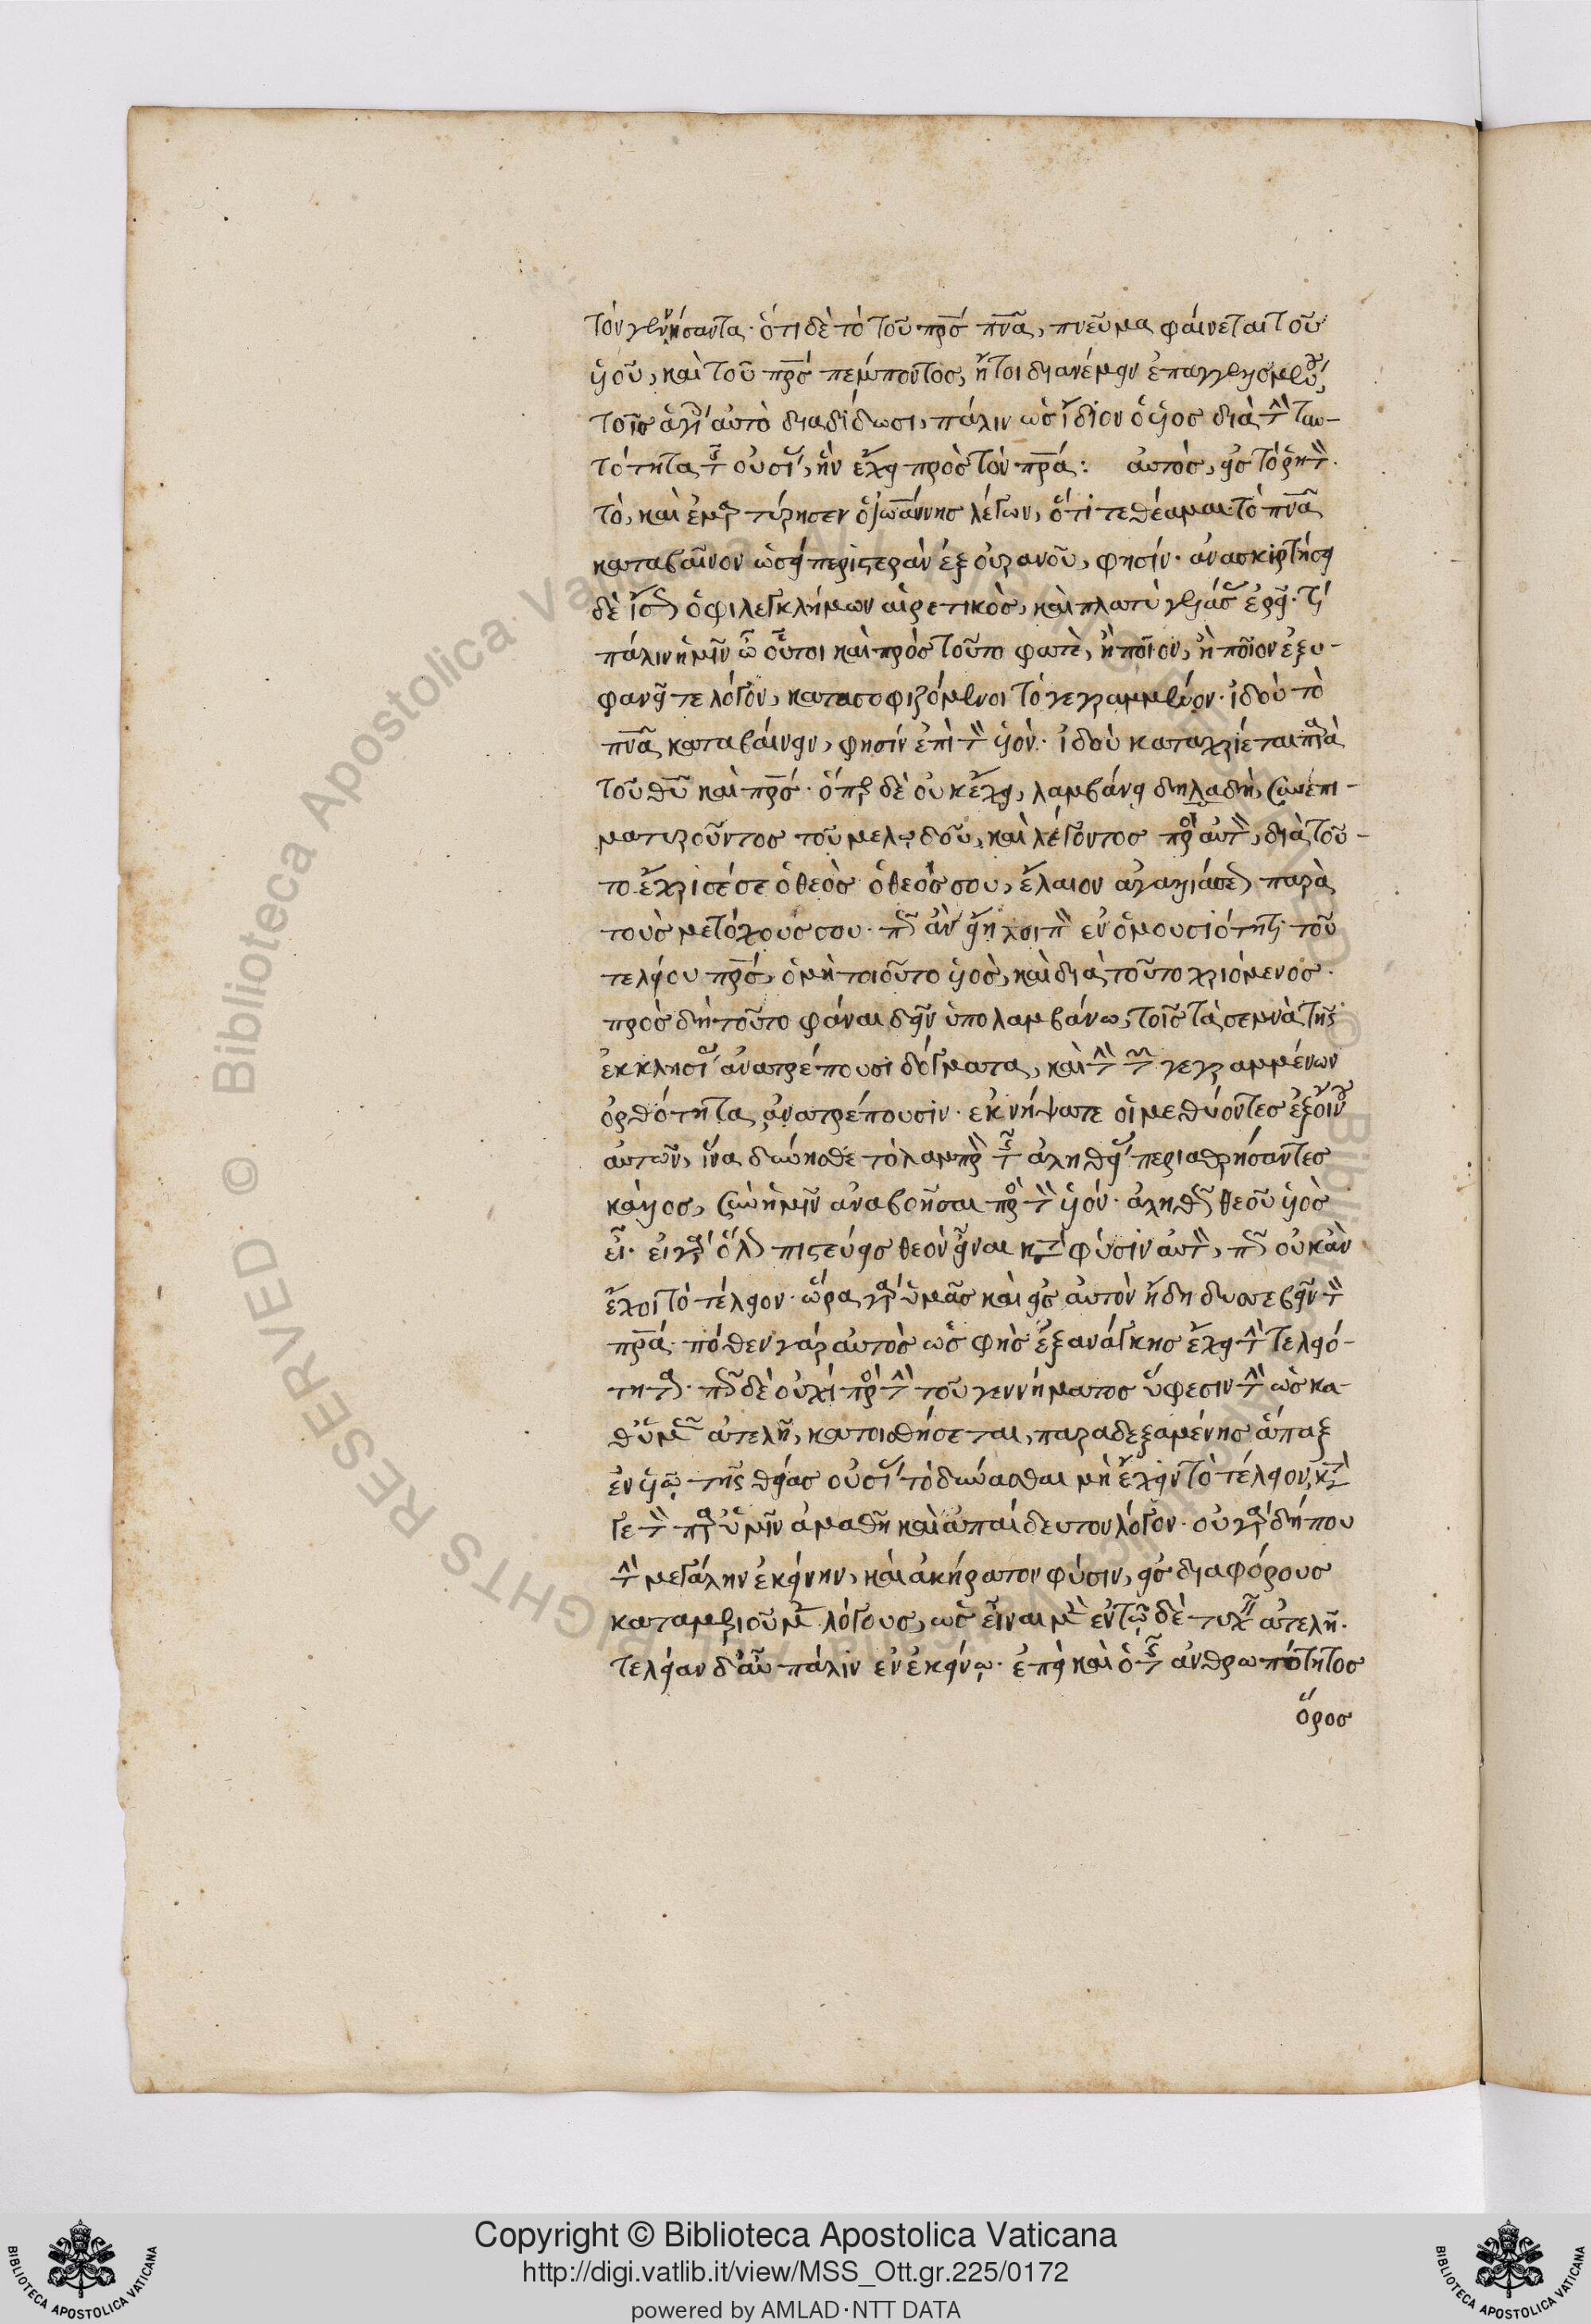 τὸν γεννήσαντα· ὅτι δὲ τὸ τοῦ πρς πνα, πνεῦμα φαίνεται τοῦ
υἱοῦ, καὶ τοῦ πρς πέμποντος, ἤτοι διανέμειν ἐπαγγελλομένου
τοῖς ἁγίοις αὐτὸ διαδίδωσι, πάλιν ὡς ἴδιον ὁ υἱος διὰ τὴν ταυ-
τότητα τῆς οὐσίας, ἣν ἔχει πρὸς τὸν πρα: αὐτὸς, εἰς τὸ ῥητὸν·
τὸ, καὶ ἐμαρτύρησεν ὁ ἰωάννης λέγων, ὅτι τεθέαμαι τὸ πνα
καταβαῖνον ὡσεὶ περιστερὰν ἐξ οὐρανοῦ, φησίν· ἀνασκιρτήσει
δὲ ἴσως ὁ φιλεγκλήμων αἱρετικὸς, καὶ πλατὺ γελάσας ἐρεῖ· τί
πάλιν ἡμῖν ὦ οὗτοι καὶ πρὸς τοῦτο φατὲ, ἢ ποῖον, ἢ ποῖον ἐξυ-
φανεῖτε λόγον, κατασοφιζόμενοι τὸ γεγραμμένον· ἰδοὺ τὸ
πνα καταβαίνειν, φησίν ἐπὶ τὸν υἱόν· ἰδοὺ καταχρίεται παρὰ
τοῦ θυ καὶ πρς· ὅπερ δὲ οὐκ ἔχει, λαμβάνει δηλαδὴ, συνεπι-
ματιζοῦντος τοῦ μελῳδοῦ, καὶ λέγοντος πρὸς αὐτὸν, διὰ τοῦ-
το ἔχρισέ σε ὁ θεὸς ὁ θεός σου, ἔλαιον ἀγαλλιάσεως παρὰ
τοὺς μετόχους σου· πῶς ἂν εἴη λοιπὸν ἐν ὁμουσιότητι τοῦ
τελείου πρς, ὁ μὴ τοιοῦτο υἱὸς, καὶ διὰ τοῦτο χριόμενος·
πρὸς δὴ τοῦτο φάναι δεῖν ὑπολαμβάνω, τοῖς τὰ σεμνὰ τῆς
ἐκκλησίας ἀνατρέπουσι δόγματα, καὶ τὴν τῶν γεγραμμένων
ὀρθότητα ἀνατρέπουσιν· ἐκνήψατε οἱ μεθύοντες ἐξ οἴνου
αὐτῶν, ἵνα δυνησθε τὸ λαμπρὸν τῆς ἀληθείας περιαθρήσαντες
κάλλος, σὺν ἡμῖν ἀναβοῆσαι πρὸς τὸν υἱόν· ἀληθῶς θεοῦ υἱὸς
εἶ· εἰ γὰρ ὅλως πιστεύεις θεὸν εἶναι κατὰ φύσιν αὐτὸν, πῶς οὐκ ἂν
ἔχοι τὸ τέλειον· ὥρα γὰρ ὑμᾶς καὶ εἰς αὐτὸν ἤδη δυσσεβεῖν τὸν
πρα· πόθεν γὰρ αὐτὸς ὡς φὴς ἐξ ἀνάγκης ἔχει τὴν τελειό-
τητα· πῶς δὲ οὐχὶ πρὸς τὴν τοῦ γεννήματος ὕφεσιν τὴν ὡς κα-
θ' ὑμᾶς ἀτελῆ, κατοισθήσεται, παραδεξαμένης ἅπαξ
ἐν υἱῷ τῆς θείας οὐσίας τὸ δύνασθαι μὴ ἔχειν τὸ τέλειον, κατά
γε τὸν παρ' ὑμῖν ἀμαθῆ καὶ ἀπαίδευτον λόγον· οὐ γὰρ δήπου
τὴν μεγάλην ἐκείνην, καὶ ἀκήρατον φύσιν, εἰς διαφόρους
καταμεριοῦμεν λόγους, ὡς εἶναι μὲν ἐν τῷδε τυχὸν ἀτελῆ·
τελείαν δ' αὖ πάλιν ἐν ἐκείνῳ· ἐπεὶ καὶ ὁ τῆς ἀνθρωπότητος
ὅρος
Copyright © Biblioteca Apostolica Vaticana
http://digi.vatlib.it/view/MSS_Ott.gr.225/0172
powered by AMLAD·NTT DATA